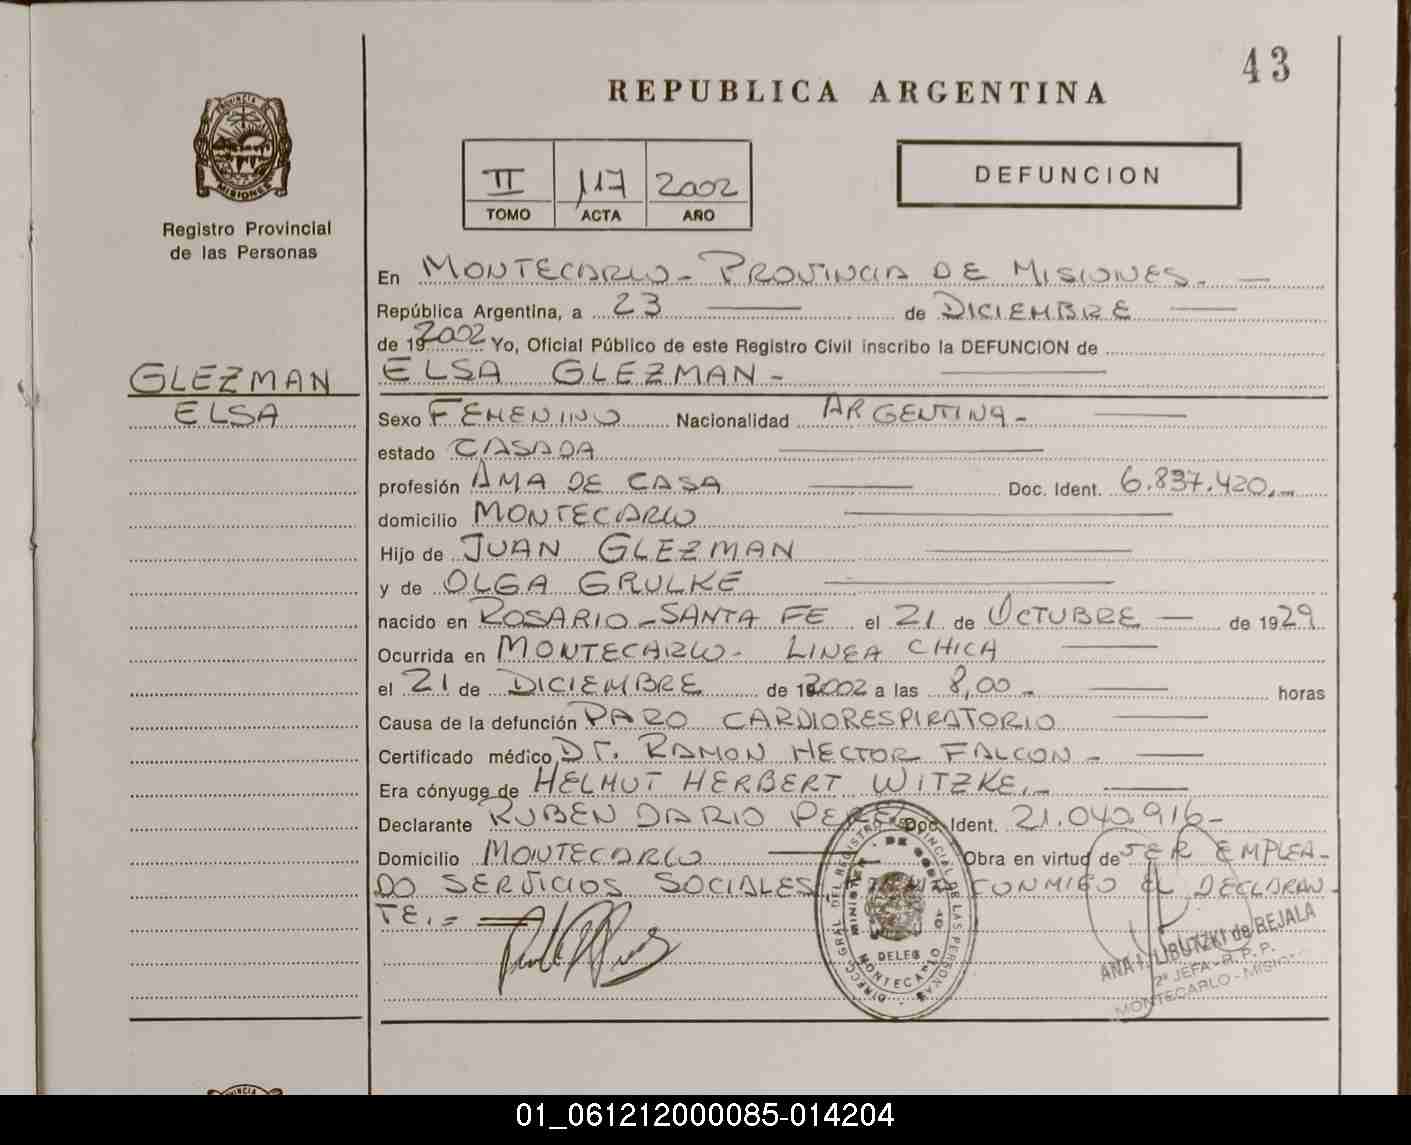 43
REPUBLICA ARGENTINA
PROVINCIA DE
MISIONES
Registro Provincial
de las Personas
II 117 2002
TOMO ACTA AÑO
DEFUNCION
En MONTECARLO - PROVINCIA DE MISIONES. —
República Argentina, a 23 — de DICIEMBRE —
de 192002 Yo, Oficial Público de este Registro Civil inscribo la DEFUNCION de
ELSA GLEZMAN - —
GLEZMAN
ELSA
Sexo FEMENINO Nacionalidad ARGENTINA - —
estado CASADA —
profesión AMA DE CASA — Doc. Ident. 6.837.420.-
domicilio MONTECARLO —
Hijo de JUAN GLEZMAN —
y de OLGA GRULKE —
nacido en ROSARIO - SANTA FE el 21 de OCTUBRE — de 1929
Ocurrida en MONTECARLO - LINEA CHICA —
el 21 de DICIEMBRE de 192002 a las 8,00 - — horas
Causa de la defunción PARO CARDIORESPIRATORIO —
Certificado médico DR. RAMON HECTOR FALCON - —
Era cónyuge de HELMUT HERBERT WITZKE.- —
Declarante RUBEN DARIO PEREZ Doc. Ident. 21.040.916-
Domicilio MONTECARLO — Obra en virtud de SER EMPLEA-
DO SERVICIOS SOCIALES, CONMIGO EL DECLARAN-
TE.=
DIRECC. GRAL. DEL REGISTRO PROVINCIAL DE LAS PERSONAS
MINISTERIO DE GOBIERNO
DELEG
MONTECARLO
ANA I. LIBUTZKI de REJALA
2ª JEFA - R. P. P.
MONTECARLO - MISIO
PROVINCIA
01_061212000085-014204